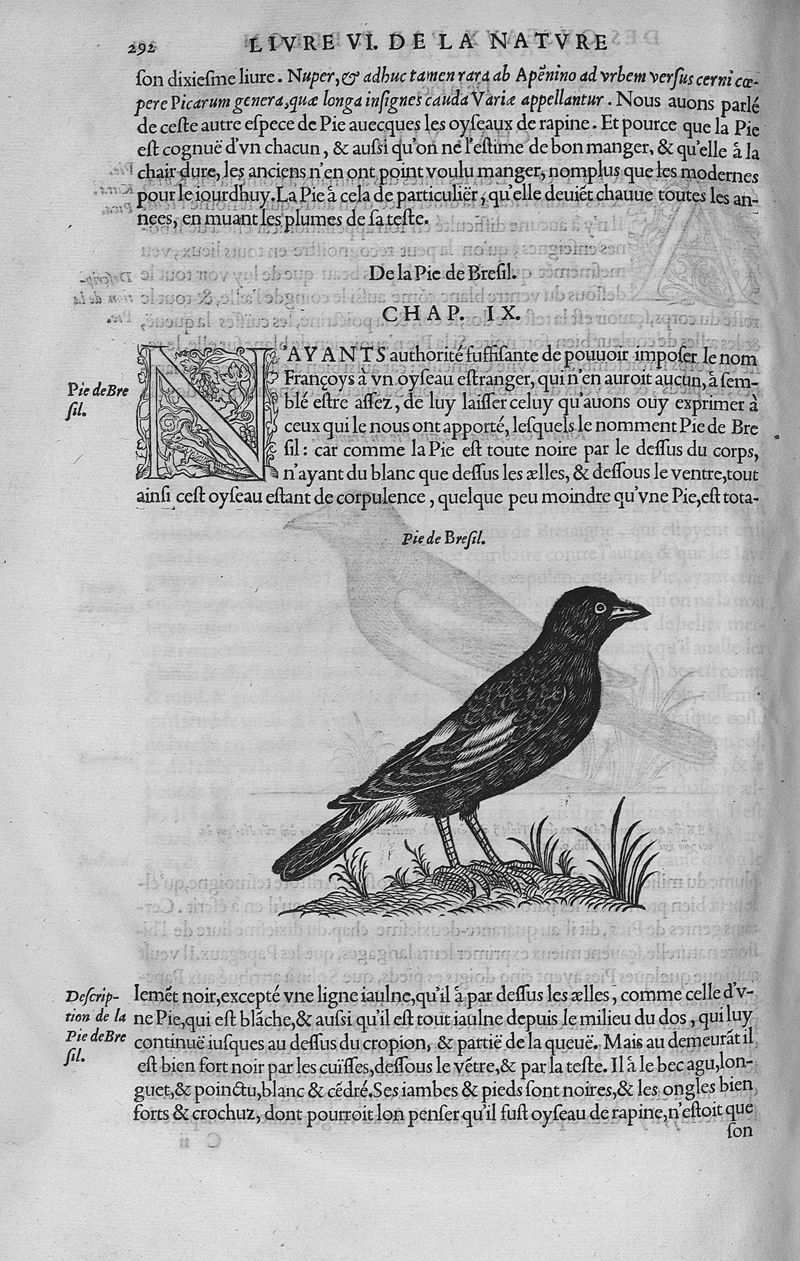 292 LIVRE VI. DE LA NATVRE
ſon dixieſme liure. Nuper, & adhuc tamen rara ab Apēnino ad vrbem verſus cerni cœ-
pere Picarum genera, quæ longa inſignes cauda Variæ appellantur. Nous auons parlé
de ceſte autre eſpece de Pie auecques les oyſeaux de rapine. Et pource que la Pie
eſt cognuë d'vn chacun, & auſsi qu'on ne l'eſtime de bon manger, & qu'elle à la
chair dure, les anciens n'en ont point voulu manger, nomplus que les modernes
pour le iourdhuy. La Pie à cela de particulier, qu'elle deuiēt chauue toutes les an-
nees, en muant les plumes de ſa teſte.
De la Pie de Breſil.
CHAP. IX.
Pie de Bre
ſil.
N'AYANTS authorité ſuffiſante de pouuoir impoſer le nom
Françoys à vn oyſeau eſtranger, qui n'en auroit aucun, à ſem-
blé eſtre aſſez, de luy laiſſer celuy qu'auons ouy exprimer à
ceux qui le nous ont apporté, leſquels le nomment Pie de Bre
ſil: car comme la Pie eſt toute noire par le deſſus du corps,
n'ayant du blanc que deſſus les ælles, & deſſous le ventre, tout
ainſi ceſt oyſeau eſtant de corpulence, quelque peu moindre qu'vne Pie, eſt tota-
Pie de Breſil.
Deſcrip-
tion de la
Pie de Bre
ſil.
lemēt noir, excepté vne ligne iaulne, qu'il à par deſſus les ælles, comme celle d'v-
ne Pie, qui eſt blāche, & auſsi qu'il eſt tout iaulne depuis le milieu du dos, qui luy
continuë iuſques au deſſus du cropion, & partië de la queuë. Mais au demeurāt il
eſt bien fort noir par les cuiſſes, deſſous le vētre, & par la teſte. Il à le bec agu, lon-
guet, & poinctu, blanc & cēdré. Ses iambes & pieds ſont noires, & les ongles bien
forts & crochuz, dont pourroit lon penſer qu'il fuſt oyſeau de rapine, n'eſtoit que
ſon